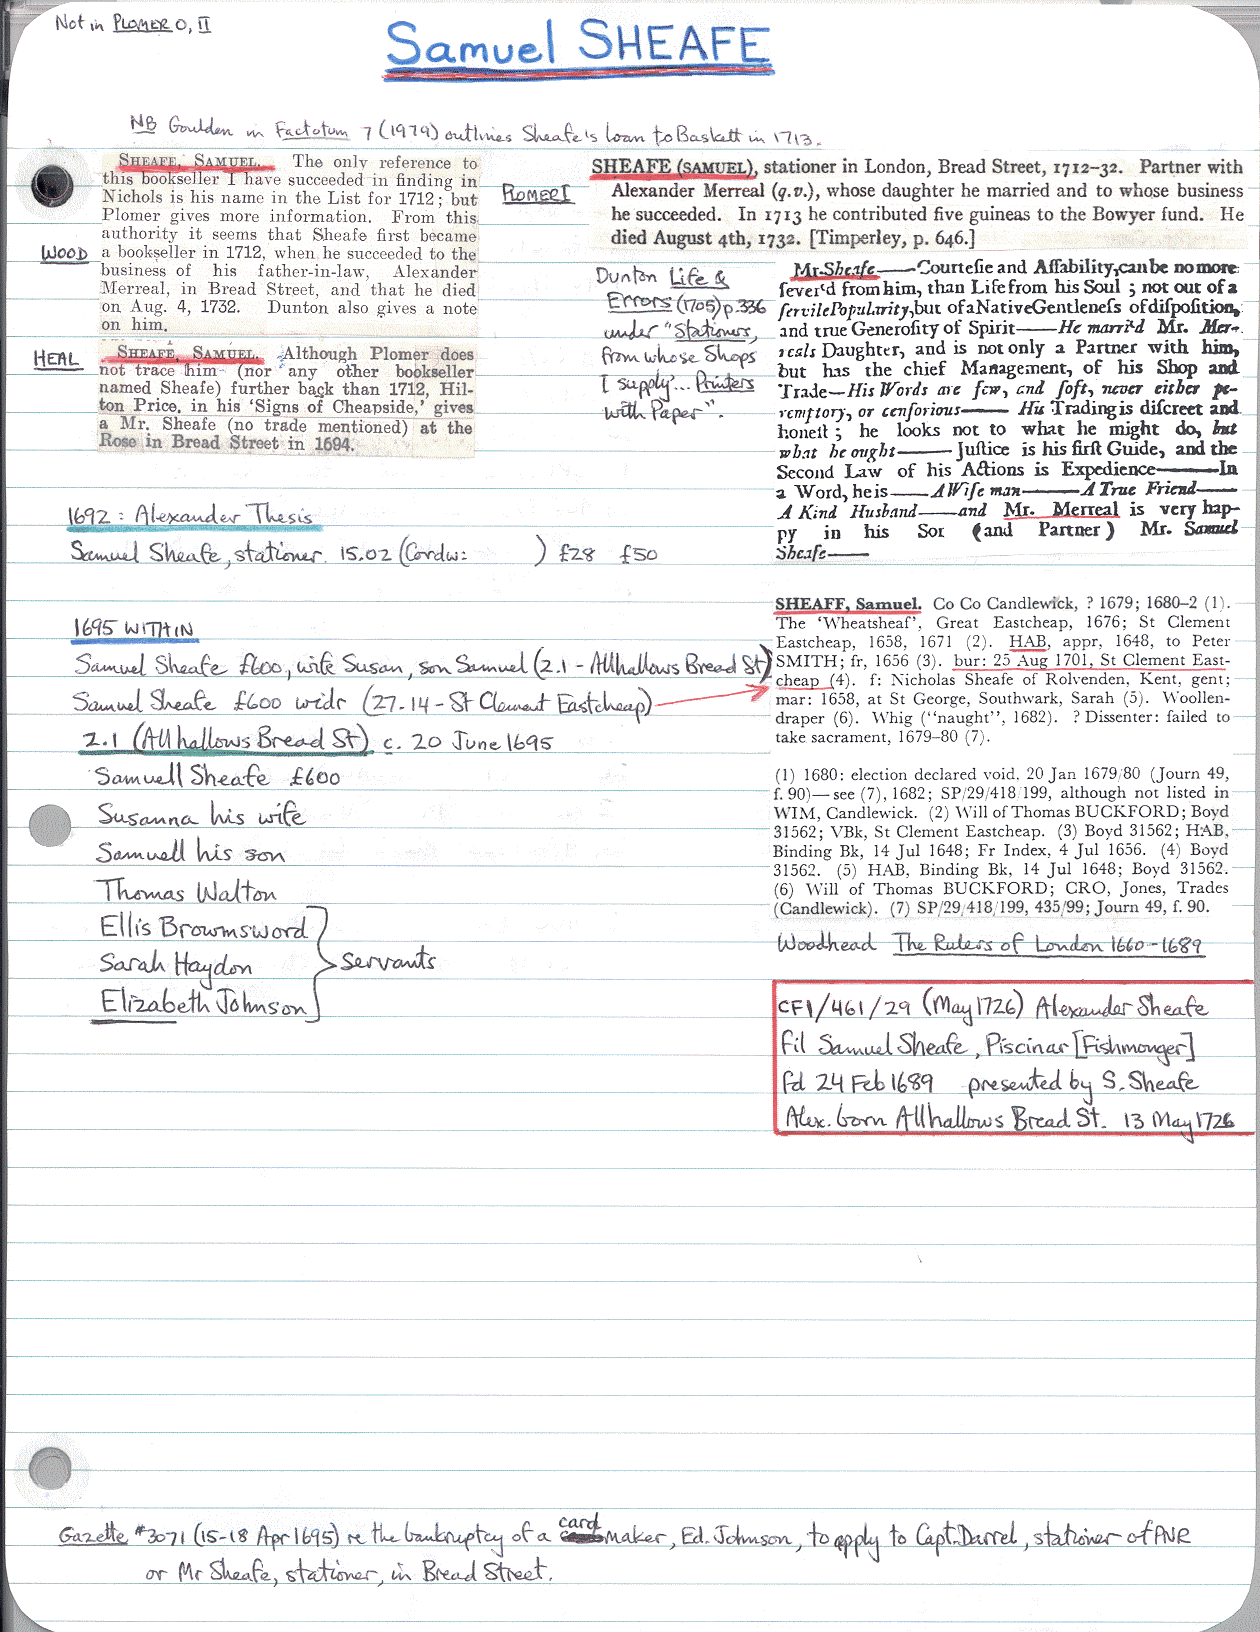 Not in PLOMER O, II
Samuel SHEAFE
NB Goulden in Factotum 7 (1979) outlines Sheafe's loan to Baskett in 1713.
WOOD
SHEAFE, SAMUEL. The only reference to
this bookseller I have succeeded in finding in
Nichols is his name in the List for 1712; but
Plomer gives more information. From this
authority it seems that Sheafe first became
a bookseller in 1712, when he succeeded to the
business of his father-in-law, Alexander
Merreal, in Bread Street, and that he died
on Aug. 4, 1732. Dunton also gives a note
on him.
HEAL
SHEAFE, SAMUEL. Although Plomer does
not trace him (nor any other bookseller
named Sheafe) further back than 1712, Hil-
ton Price, in his 'Signs of Cheapside,' gives
a Mr. Sheafe (no trade mentioned) at the
Rose in Bread Street in 1694.
PLOMER I
SHEAFE (SAMUEL), stationer in London, Bread Street, 1712–32. Partner with
Alexander Merreal (q.v.), whose daughter he married and to whose business
he succeeded. In 1713 he contributed five guineas to the Bowyer fund. He
died August 4th, 1732. [Timperley, p. 646.]
Dunton Life &
Errors (1705) p.336
under "Stationers,
from whose Shops
I supply... Printers
with Paper".
Mr. Sheafe——Courteſie and Affability, can be no more
ſever'd from him, than Life from his Soul; not out of a
ſervile Popularity, but of a Native Gentleneſs of diſpoſition,
and true Generoſity of Spirit——He marri'd Mr. Mer-
reals Daughter, and is not only a Partner with him,
but has the chief Management, of his Shop and
Trade—His Words are few, and ſoft, never either pe-
remptory, or cenſorious——His Trading is diſcreet and
honeſt; he looks not to what he might do, but
what he ought——Juſtice is his firſt Guide, and the
Second Law of his Actions is Expedience——In
a Word, he is——A Wiſe man——A True Friend——
A Kind Husband——and Mr. Merreal is very hap-
py in his Son (and Partner) Mr. Samuel
Sheafe——
1692: Alexander Thesis
Samuel Sheafe, stationer. 15.02 (Cordw: ) £28 £50
1695 WITHIN
Samuel Sheafe £600, wife Susan, son Samuel (2.1 - Allhallows Bread St)
Samuel Sheafe £600 widr (27.14 - St Clement Eastcheap)
2.1 (Allhallows Bread St) c. 20 June 1695
Samuell Sheafe £600
Susanna his wife
Samuell his son
Thomas Walton
Ellis Brownsword
Sarah Haydon
Elizabeth Johnson
servants
SHEAFF, Samuel. Co Co Candlewick, ? 1679; 1680–2 (1).
The 'Wheatsheaf', Great Eastcheap, 1676; St Clement
Eastcheap, 1658, 1671 (2). HAB, appr, 1648, to Peter
SMITH; fr, 1656 (3). bur: 25 Aug 1701, St Clement East-
cheap (4). f: Nicholas Sheafe of Rolvenden, Kent, gent;
mar: 1658, at St George, Southwark, Sarah (5). Woollen-
draper (6). Whig ("naught", 1682). ? Dissenter: failed to
take sacrament, 1679–80 (7).
(1) 1680: election declared void, 20 Jan 1679/80 (Journ 49,
f. 90)—see (7), 1682; SP/29/418/199, although not listed in
WIM, Candlewick. (2) Will of Thomas BUCKFORD; Boyd
31562; VBk, St Clement Eastcheap. (3) Boyd 31562; HAB,
Binding Bk, 14 Jul 1648; Fr Index, 4 Jul 1656. (4) Boyd
31562. (5) HAB, Binding Bk, 14 Jul 1648; Boyd 31562.
(6) Will of Thomas BUCKFORD; CRO, Jones, Trades
(Candlewick). (7) SP/29/418/199, 435/99; Journ 49, f. 90.
Woodhead The Rulers of London 1660-1689
CF1/461/29 (May 1726) Alexander Sheafe
fil Samuel Sheafe, Piscinar [Fishmonger]
fd 24 Feb 1689 presented by S. Sheafe
Alex. born Allhallows Bread St. 13 May 1726
Gazette #3071 (15-18 Apr 1695) re the bankruptcy of a card maker, Ed. Johnson, to apply to Capt. Darrel, stationer of PNR
or Mr Sheafe, stationer, in Bread Street.